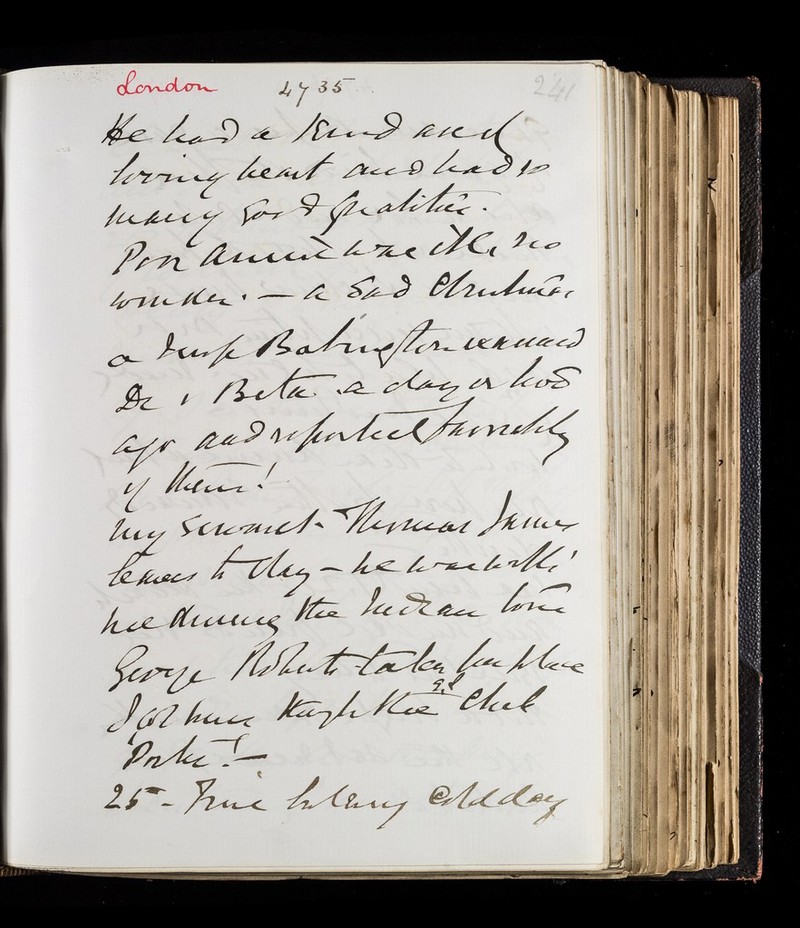 London 4735 241
He had a kind and
loving heart and had so
many good qualities.
Poor Annie was ill, no
wonder. — a sad Christmas
a Nurse Babington
De & Beta a day or two
ago and reported favorably
of them!
My servant - Thomas James
leaves to day - he was with
me during the Indian tour
George Roberts takes his place
I got him through the Club
Porter! —
25 - Fine cold day